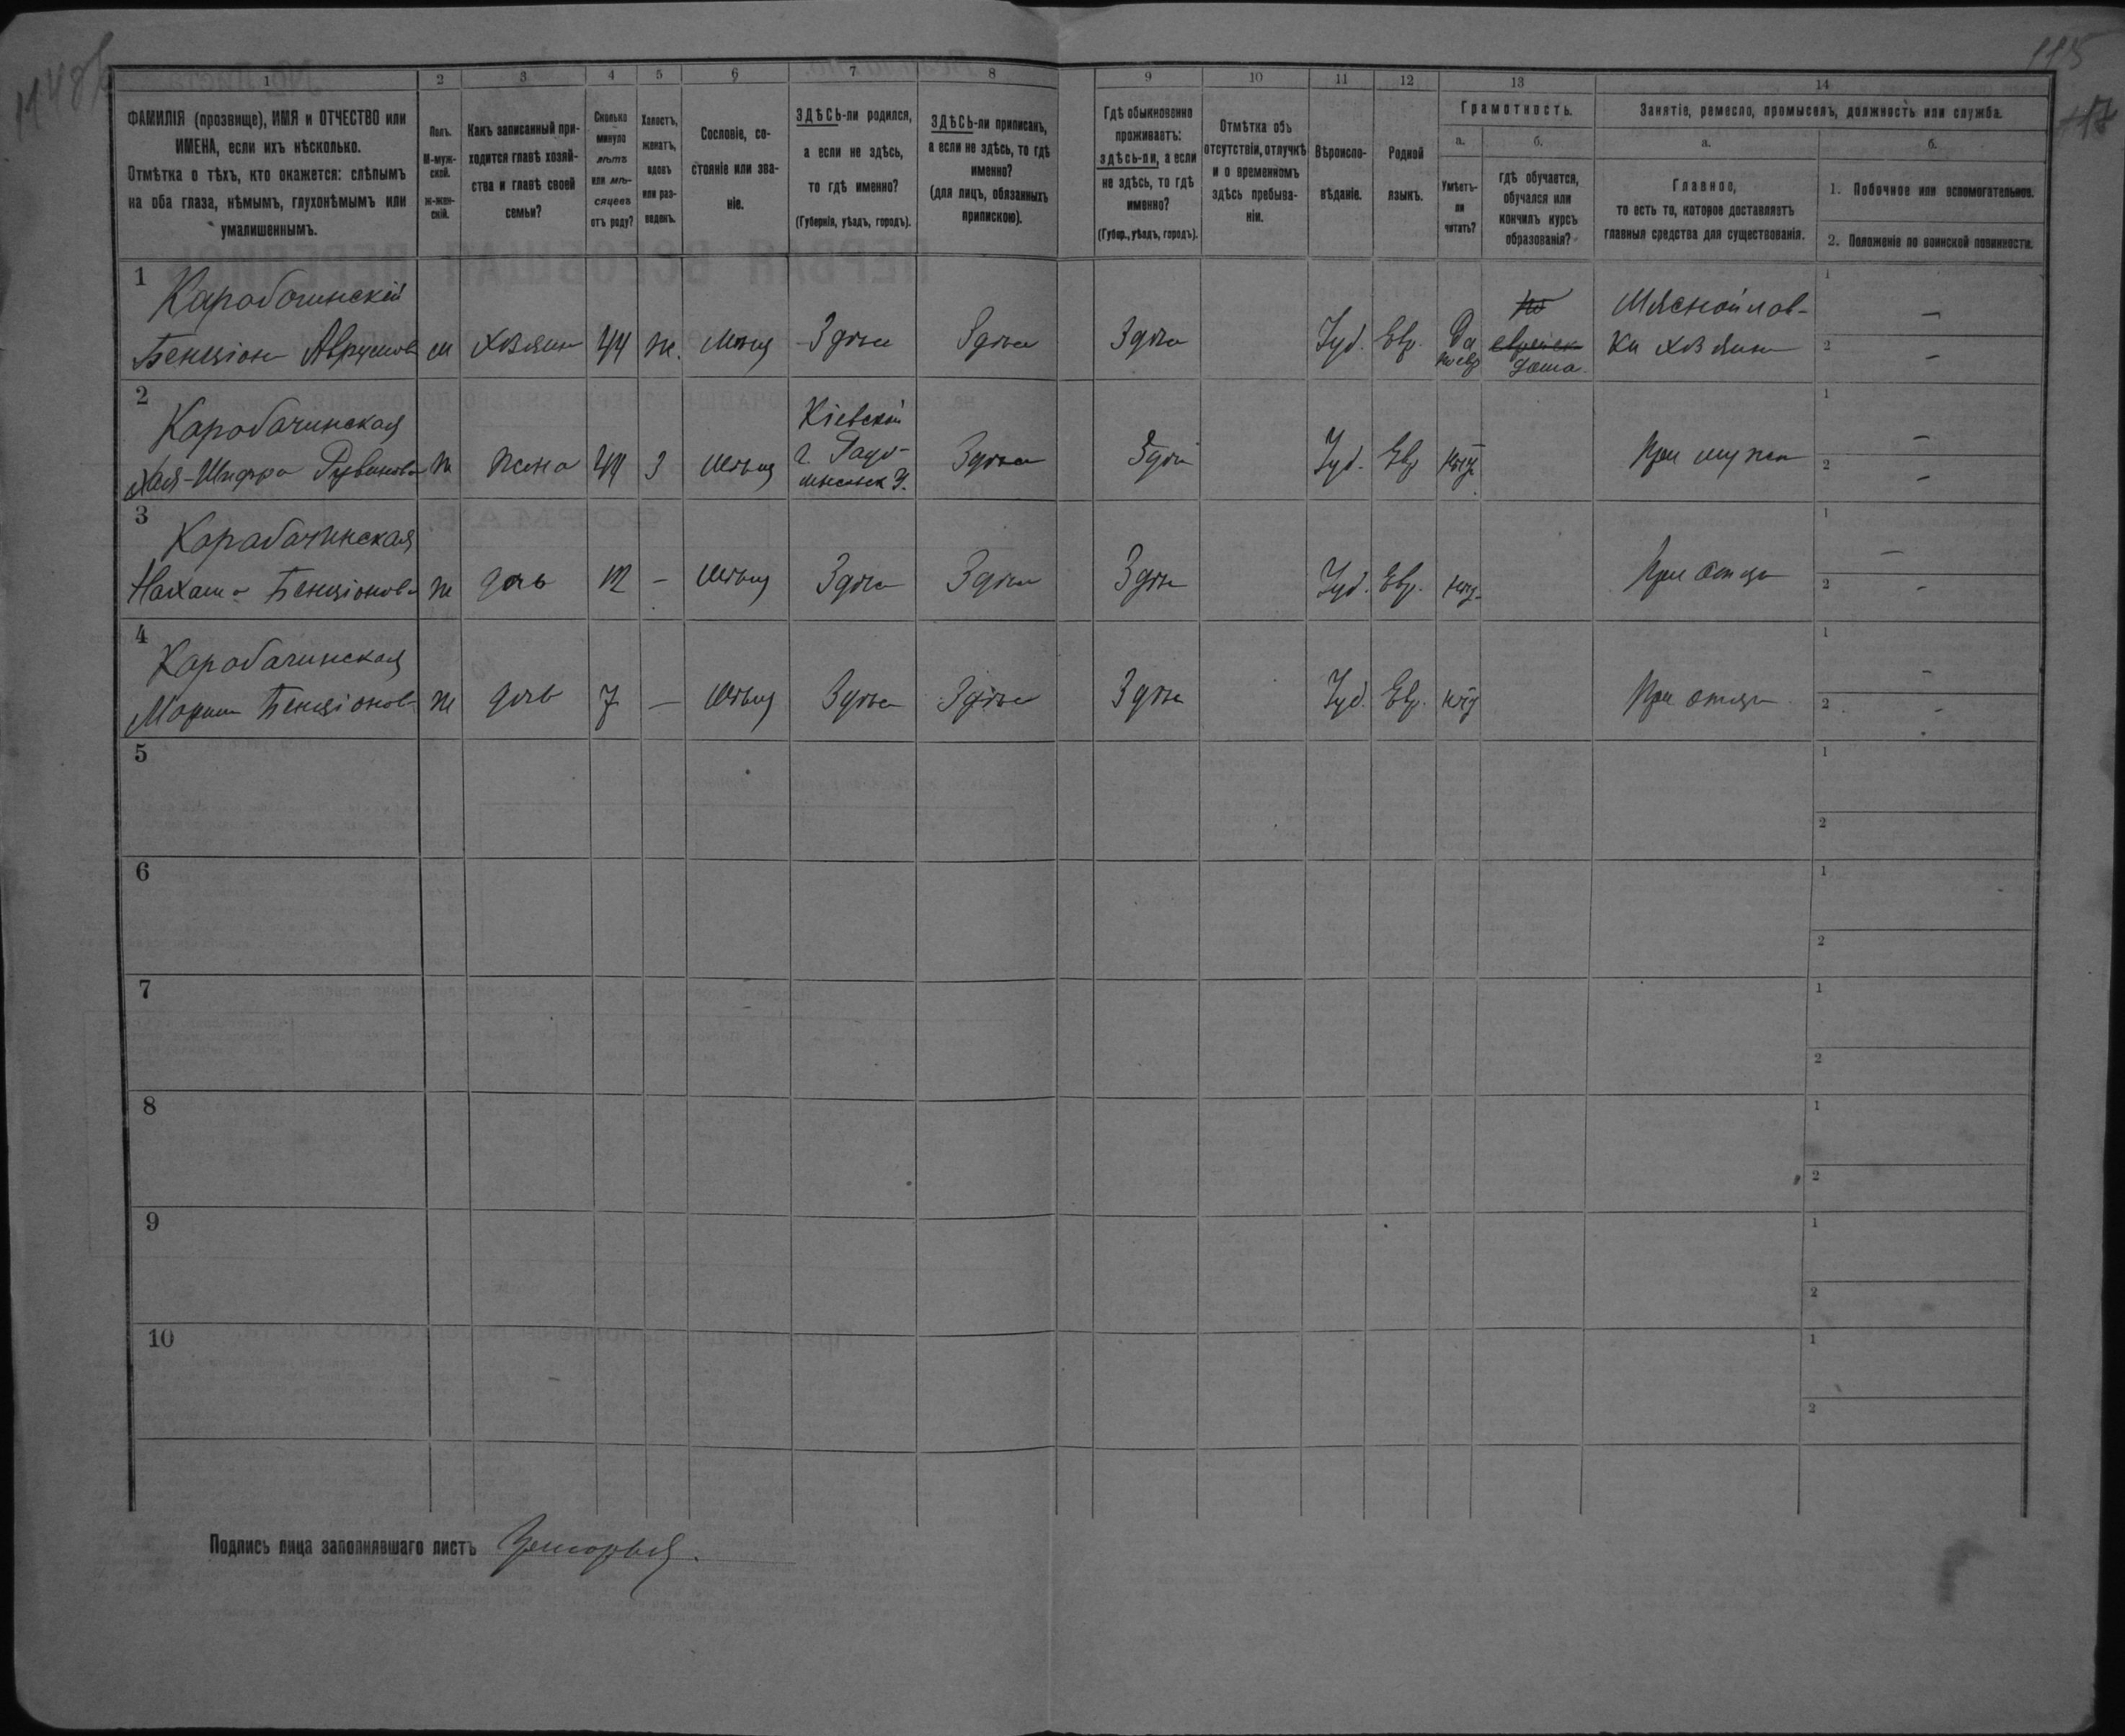 115
1
ФАМИЛІЯ (прозвище), ИМЯ и ОТЧЕСТВО или
ИМЕНА, если ихъ нѣсколько.
Отмѣтка о тѣхъ, кто окажется: слѣпымъ
на оба глаза, нѣмымъ, глухонѣмымъ или
умалишеннымъ.
2
Полъ.
М-муж-
ской.
ж-жен-
скій.
3
Какъ записанный при-
ходится главѣ хозяй-
ства и главѣ своей
семьи?
4
Сколько
минуло
лѣтъ
или мѣ-
сяцевъ
отъ роду?
5
Холостъ,
женатъ,
вдовъ
или раз-
веденъ.
6
Сословіе, со-
стояніе или зва-
ніе.
7
ЗДѢСЬ-ли родился,
а если не здѣсь,
то гдѣ именно?
(Губернія, уѣздъ, городъ).
8
ЗДѢСЬ-ли приписанъ,
а если не здѣсь, то гдѣ
именно?
(для лицъ, обязанныхъ
припискою).
9
Гдѣ обыкновенно
проживаетъ:
здѣсь-ли, а если
не здѣсь, то гдѣ
именно?
(Губер., уѣздъ, городъ).
10
Отмѣтка объ
отсутствіи, отлучкѣ
и о временномъ
здѣсь пребыва-
ніи.
11
Вѣроиспо-
вѣданіе.
12
Родной
языкъ.
13
Грамотность.
а.
Умѣетъ-
ли
читать?
б.
гдѣ обучается,
обучался или
кончилъ курсъ
образованія?
14
Занятіе, ремесло, промыселъ, должность или служба.
а.
Главное,
то есть то, которое доставляетъ
главныя средства для существованія.
б.
1. Побочное или вспомогательное.
2. Положеніе по воинской повинности.
1
Карабачинскій
Бенціонъ Аврумовъ м хозяинъ 44 ж. мѣщ Здѣсь Здѣсь Здѣсь Іуд. Евр. Да
по евр
дома
Мясной лав-
ки хозяинъ
1 –
2 –
2
Карабачинская
Хая-Шифра Рувинова ж жена 44 З мѣщ
Кіевской
г. Радо-
мысльск у.
Здѣсь Здѣсь Іуд. Евр нѣт При мужѣ
1 –
2 –
3
Карабачинская
Нахама Бенціонова ж дочь 12 – мѣщ Здѣсь Здѣсь Здѣсь Іуд. Евр. нѣт При отцѣ
1 –
2 –
4
Карабачинская
Марьям Бенціонов ж дочь 7 – мѣщ Здѣсь Здѣсь Здѣсь Іуд. Евр. нѣт При отцѣ
1 –
2 –
5
1
2
6
1
2
7
1
2
8
1
2
9
1
2
10
1
2
Подпись лица заполнявшаго листъ